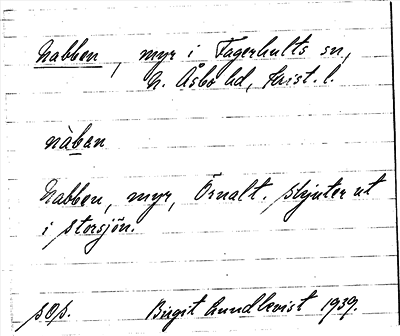 Nabben, myr i Fagerhults sn,
N. Åsbo hd, Krist. l.
nàban
Nabben, myr, Örnalt. Skjuter ut
i Storsjön.
sOs.
Birgit Lundkvist 1939.